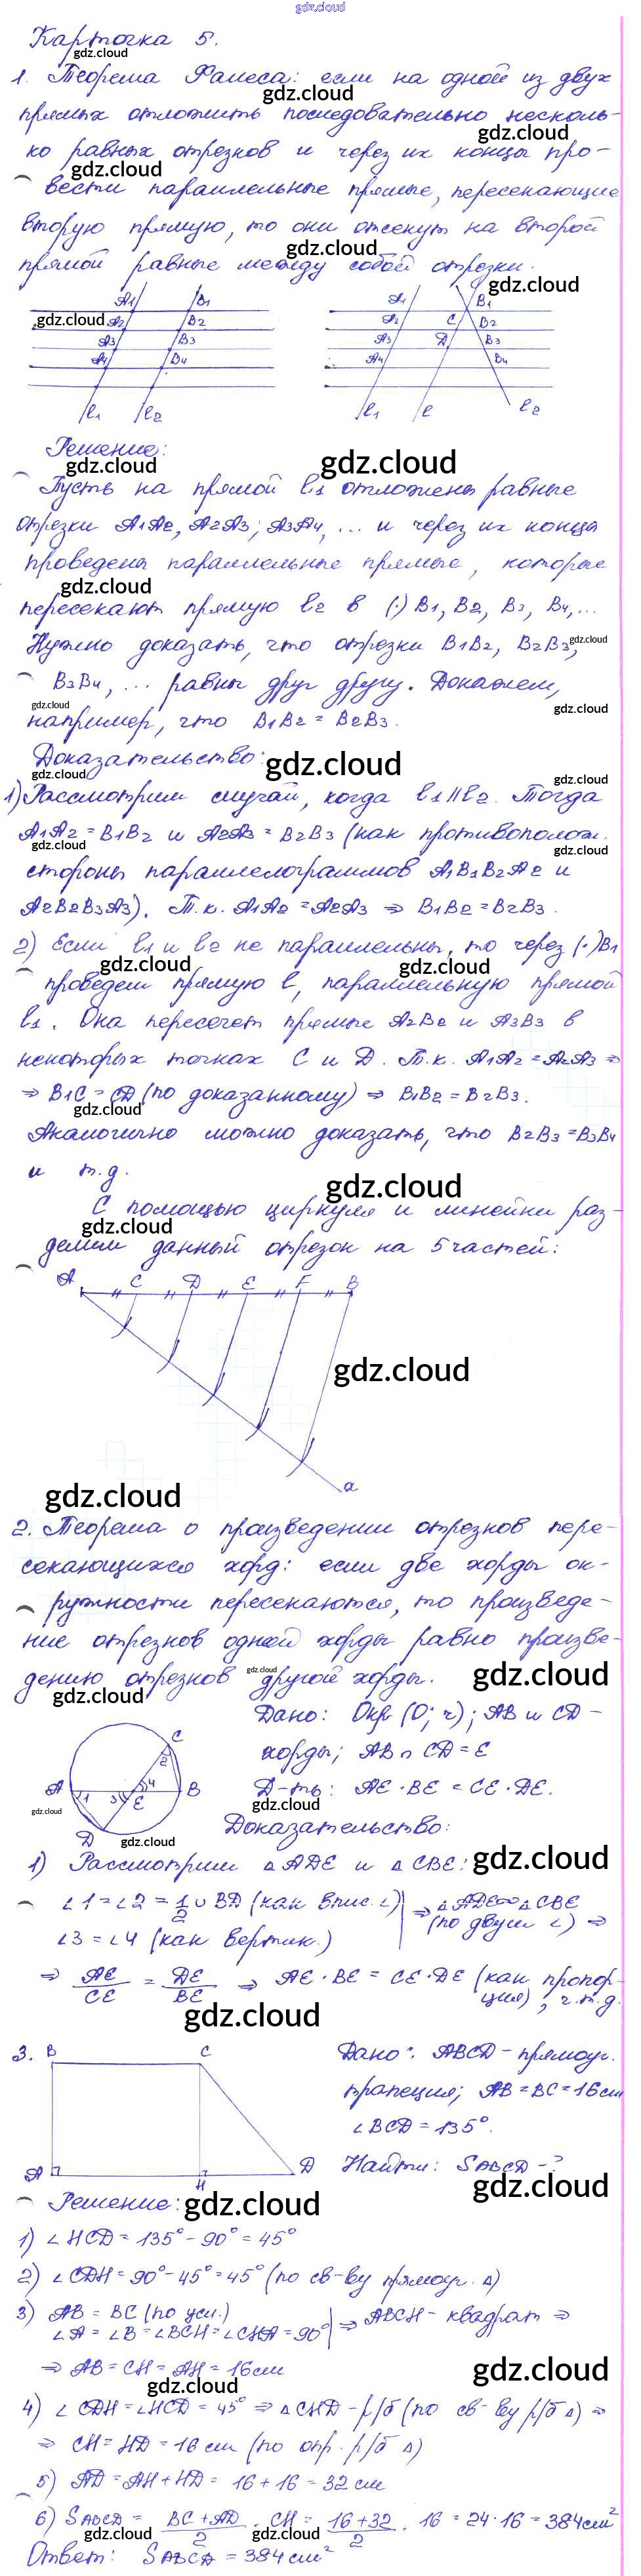 gdz.cloud
Карточка 5.
1. Теорема Фалеса: если на одной из двух
прямых отложить последовательно несколь-
ко равных отрезков и через их концы про-
вести параллельные прямые, пересекающие
вторую прямую, то они отсекут на второй
прямой равные между собой отрезки.
A1 B1 A1 B1
A2 B2 A2 C B2
A3 B3 A3 D B3
A4 B4 A4 B4
l1 l2 l1 l l2
Решение:
Пусть на прямой l1 отложены равные
отрезки A1A2, A2A3, A3A4, ... и через их концы
проведены параллельные прямые, которые
пересекают прямую l2 в (·) B1, B2, B3, B4,...
Нужно доказать, что отрезки B1B2, B2B3,
B3B4, ... равны друг другу. Докажем,
например, что B1B2 = B2B3.
Доказательство:
1) Рассмотрим случай, когда l1 || l2. Тогда
A1A2 = B1B2 и A2A3 = B2B3 (как противополож.
стороны параллелограммов A1B1B2A2 и
A2B2B3A3). Т.к. A1A2 = A2A3 ⇒ B1B2 = B2B3.
2) Если l1 и l2 не параллельны, то через (·) B1
проведем прямую l, параллельную прямой
l1. Она пересечет прямые A2B2 и A3B3 в
некоторых точках C и D. Т.к. A1A2 = A2A3 ⇒
⇒ B1C = CD (по доказанному) ⇒ B1B2 = B2B3.
Аналогично можно доказать, что B2B3 = B3B4
и т.д.
С помощью циркуля и линейки раз-
делим данный отрезок на 5 частей:
A C D E F B
a
2. Теорема о произведении отрезков пере-
секающихся хорд: если две хорды ок-
ружности пересекаются, то произведе-
ние отрезков одной хорды равно произве-
дению отрезков другой хорды.
Дано: Окр (O; r); AB и CD -
хорды; AB ∩ CD = E
Д-ть: AE · BE = CE · DE.
C 2 A 1 3 4 E B D
Доказательство:
1) Рассмотрим △ADE и △CBE:
∠1 = ∠2 = 1/2 ∪ BD (как впис. ∠) | ⇒ △ADE ∞ △CBE
∠3 = ∠4 (как вертик.) | (по двум ∠) ⇒
⇒ AE/CE = DE/BE ⇒ AE · BE = CE · DE (как пропор-
ция), ч.т.д.
3. B C
A H D
Дано: ABCD - прямоуг.
трапеция; AB = BC = 16 см
∠BCD = 135°.
Найти: SABCD - ?
Решение:
1) ∠HCD = 135° - 90° = 45°
2) ∠CDH = 90° - 45° = 45° (по св-ву прямоуг. △)
3) AB = BC (по усл.)
∠A = ∠B = ∠BCH = ∠CHA = 90° | ⇒ ABCH - квадрат ⇒
⇒ AB = CH = AH = 16 см
4) ∠CDH = ∠HCD = 45° ⇒ △CHD - р/б (по св-ву р/б △) ⇒
⇒ CH = HD = 16 см (по опр. р/б △)
5) AD = AH + HD = 16 + 16 = 32 см
6) SABCD = (BC + AD)/2 · CH = (16 + 32)/2 · 16 = 24 · 16 = 384 см²
Ответ: SABCD = 384 см²